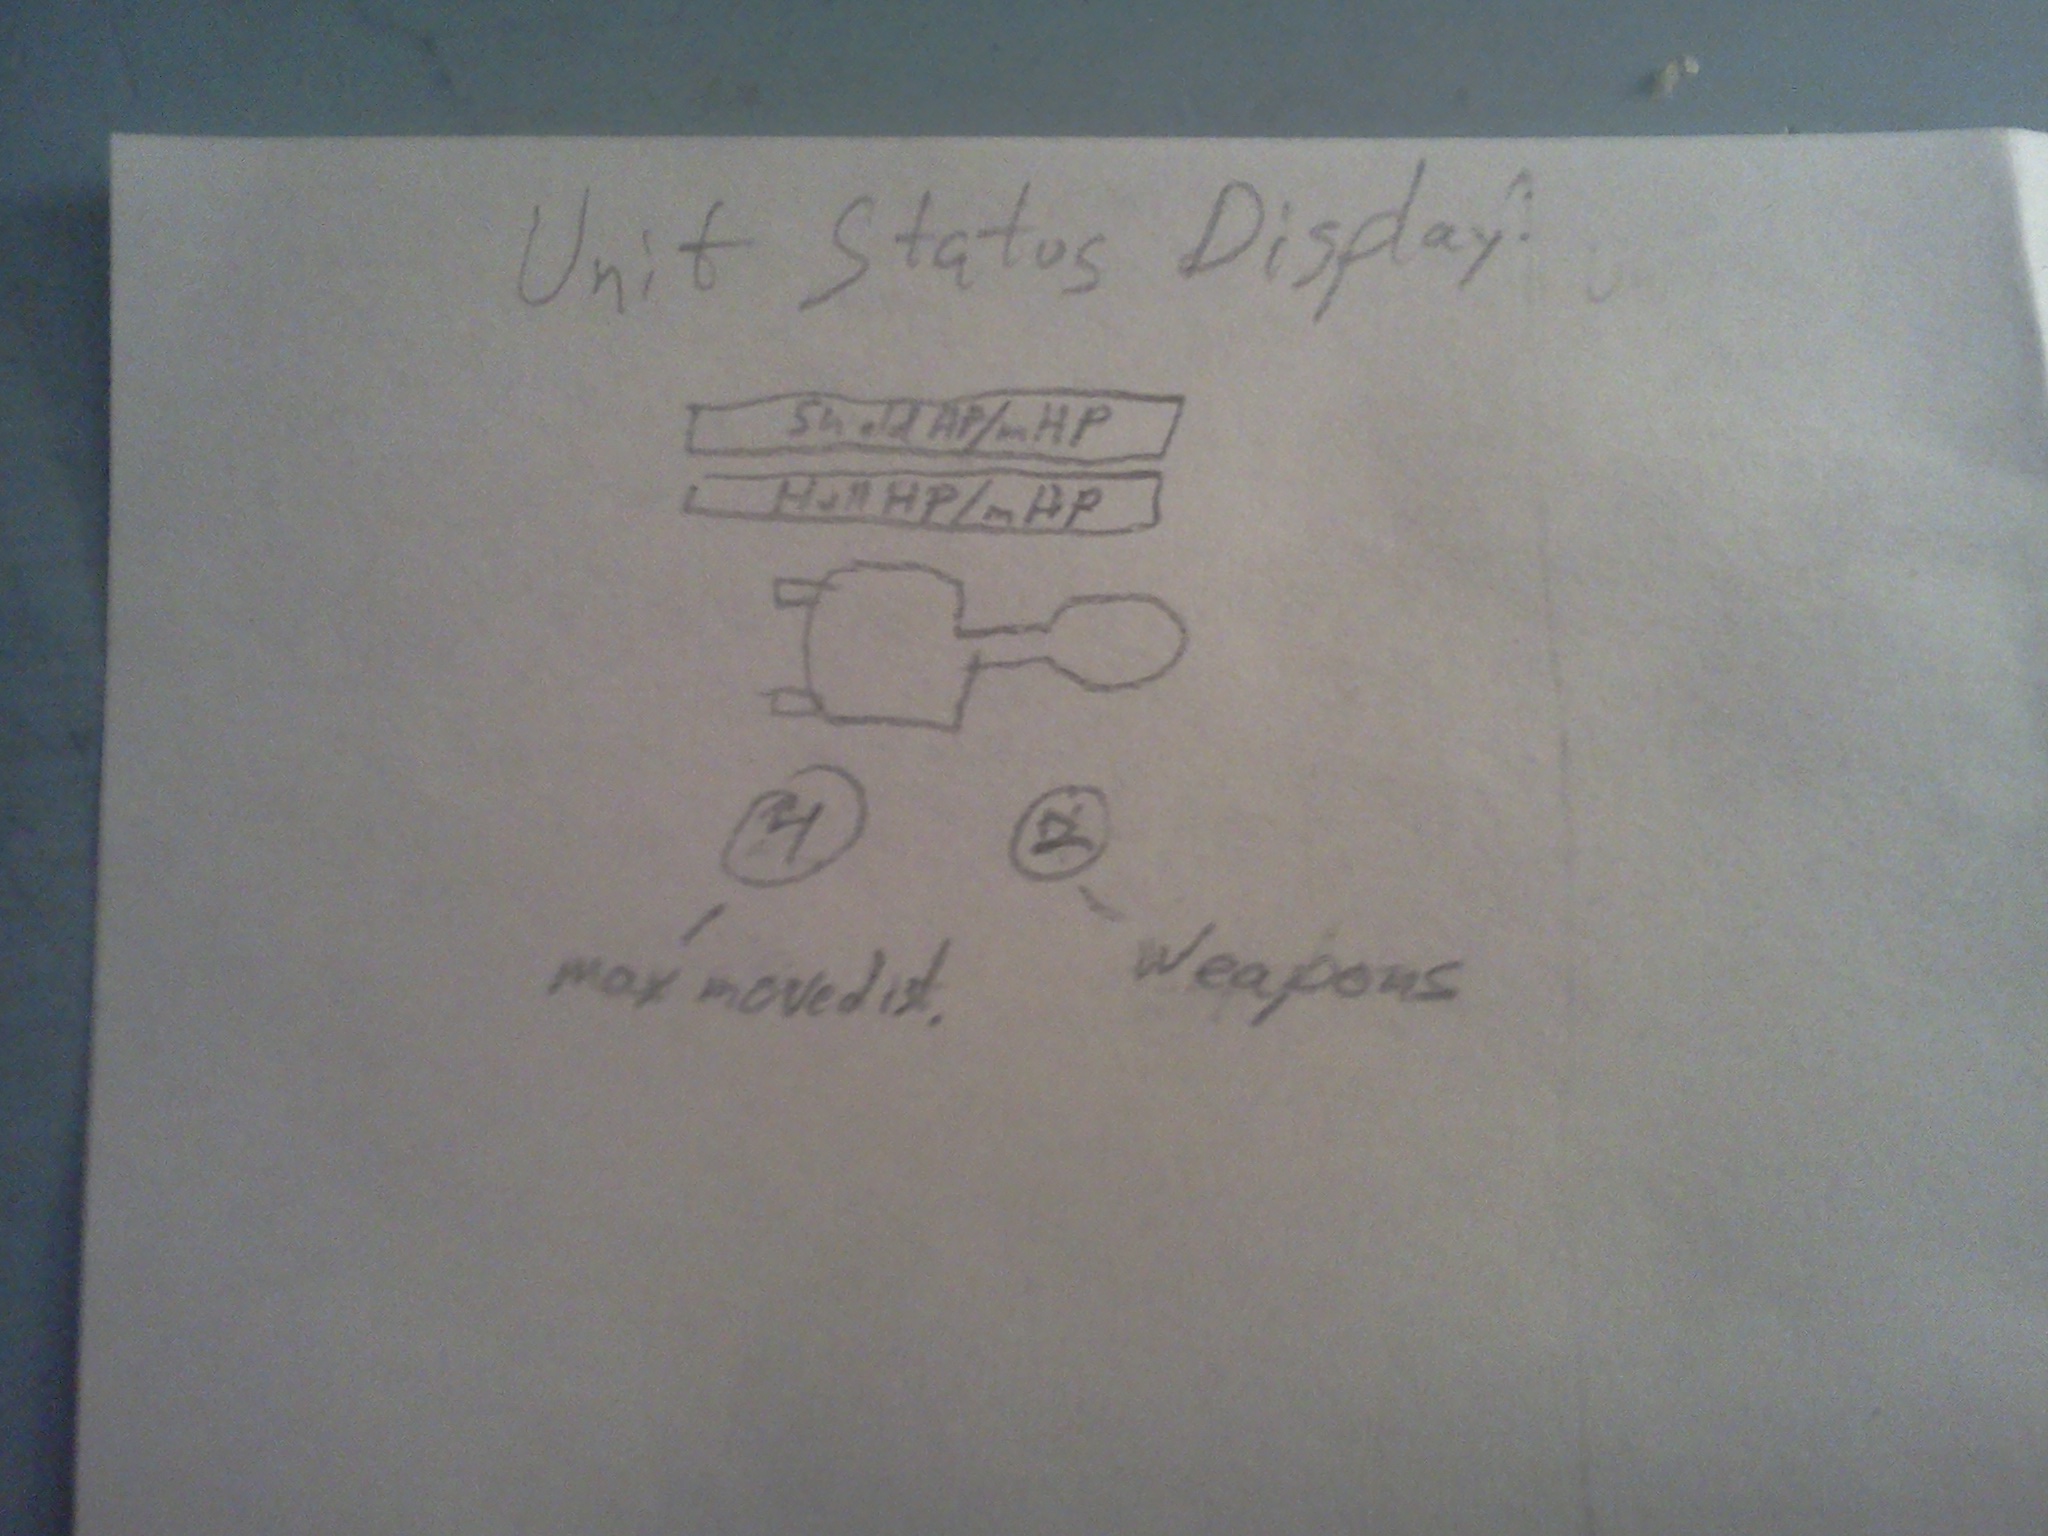 Unit Status Display:
Shield HP/mHP
Hull HP/mHP
4
2
max move dist.
Weapons